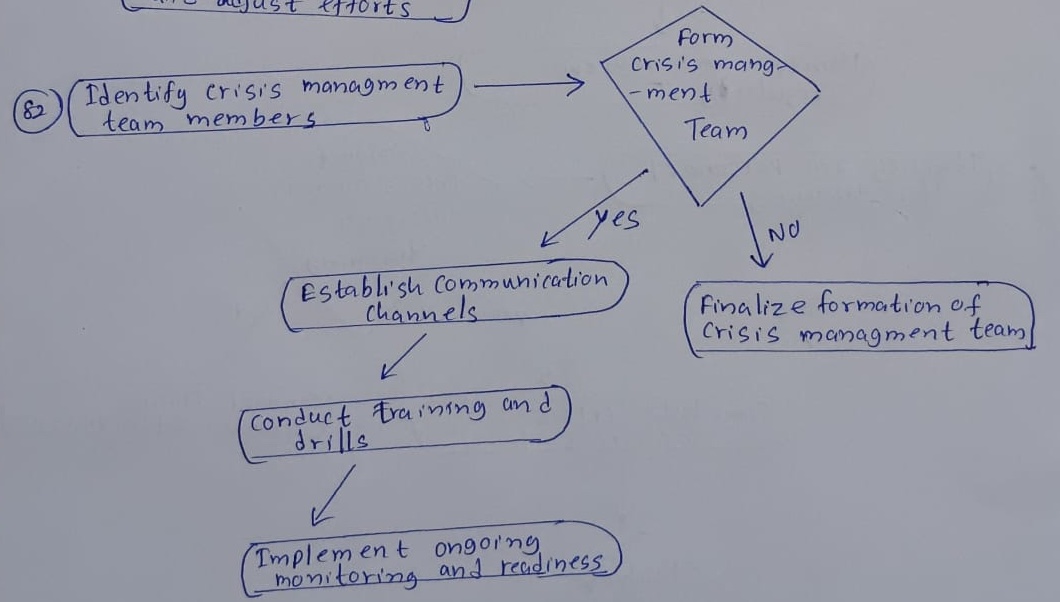 adjust efforts
82
Identify crisis managment
team members
Form
crisis mang-
-ment
Team
Yes
NO
Establish Communication
channels
Finalize formation of
Crisis managment team
Conduct training and
drills
Implement ongoing
monitoring and readiness